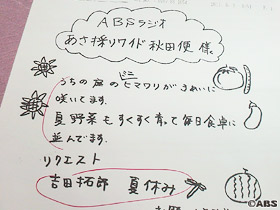 ABSラジオ
あさ採りワイド秋田便 様
うちの庭のミニヒマワリがきれいに
咲いてます。
夏野菜もすくすく育って毎日食卓に
並んでます。
リクエスト
吉田拓郎 夏休み
©ABS